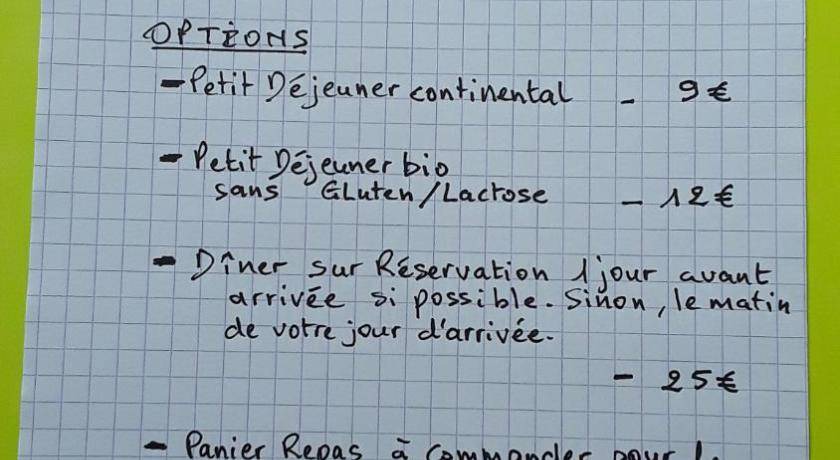 OPTIONS
- Petit Déjeuner continental - 9€
- Petit Déjeuner bio
sans Gluten/Lactose - 12€
- Dîner sur Réservation 1 jour avant
arrivée si possible. Sinon, le matin
de votre jour d'arrivée.
- 25€
- Panier Repas à commander pour